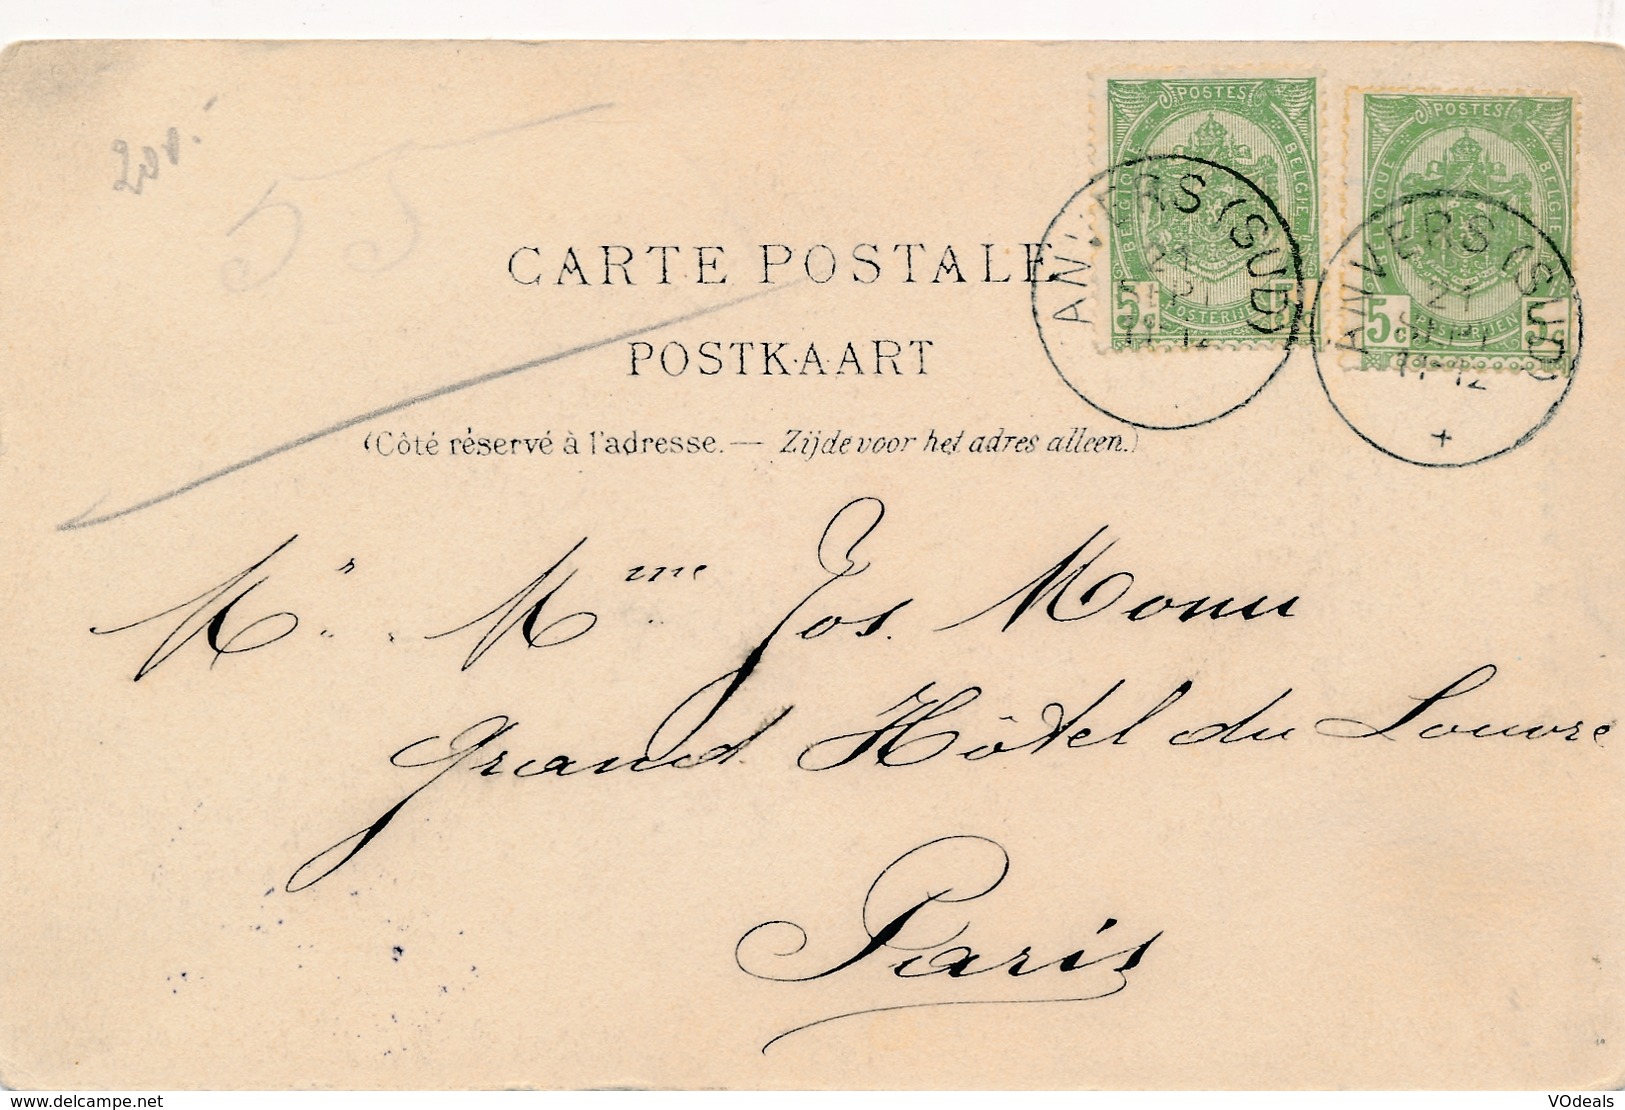 POSTES POSTES
BELGIQUE BELGIE BELGIQUE BELGIE
5c POSTERIJEN 5c 5c POSTERIJEN 5c
ANVERS (SUD) ANVERS (SUD)
21 21
SEPT SEPT
11-12 11-12
CARTE POSTALE
POSTKAART
(Côté réservé à l'adresse. — Zijde voor het adres alleen.)
Mr. Mme Jos. Monu
Grand Hôtel du Louvre
Paris
delcampe.net
VOdeals